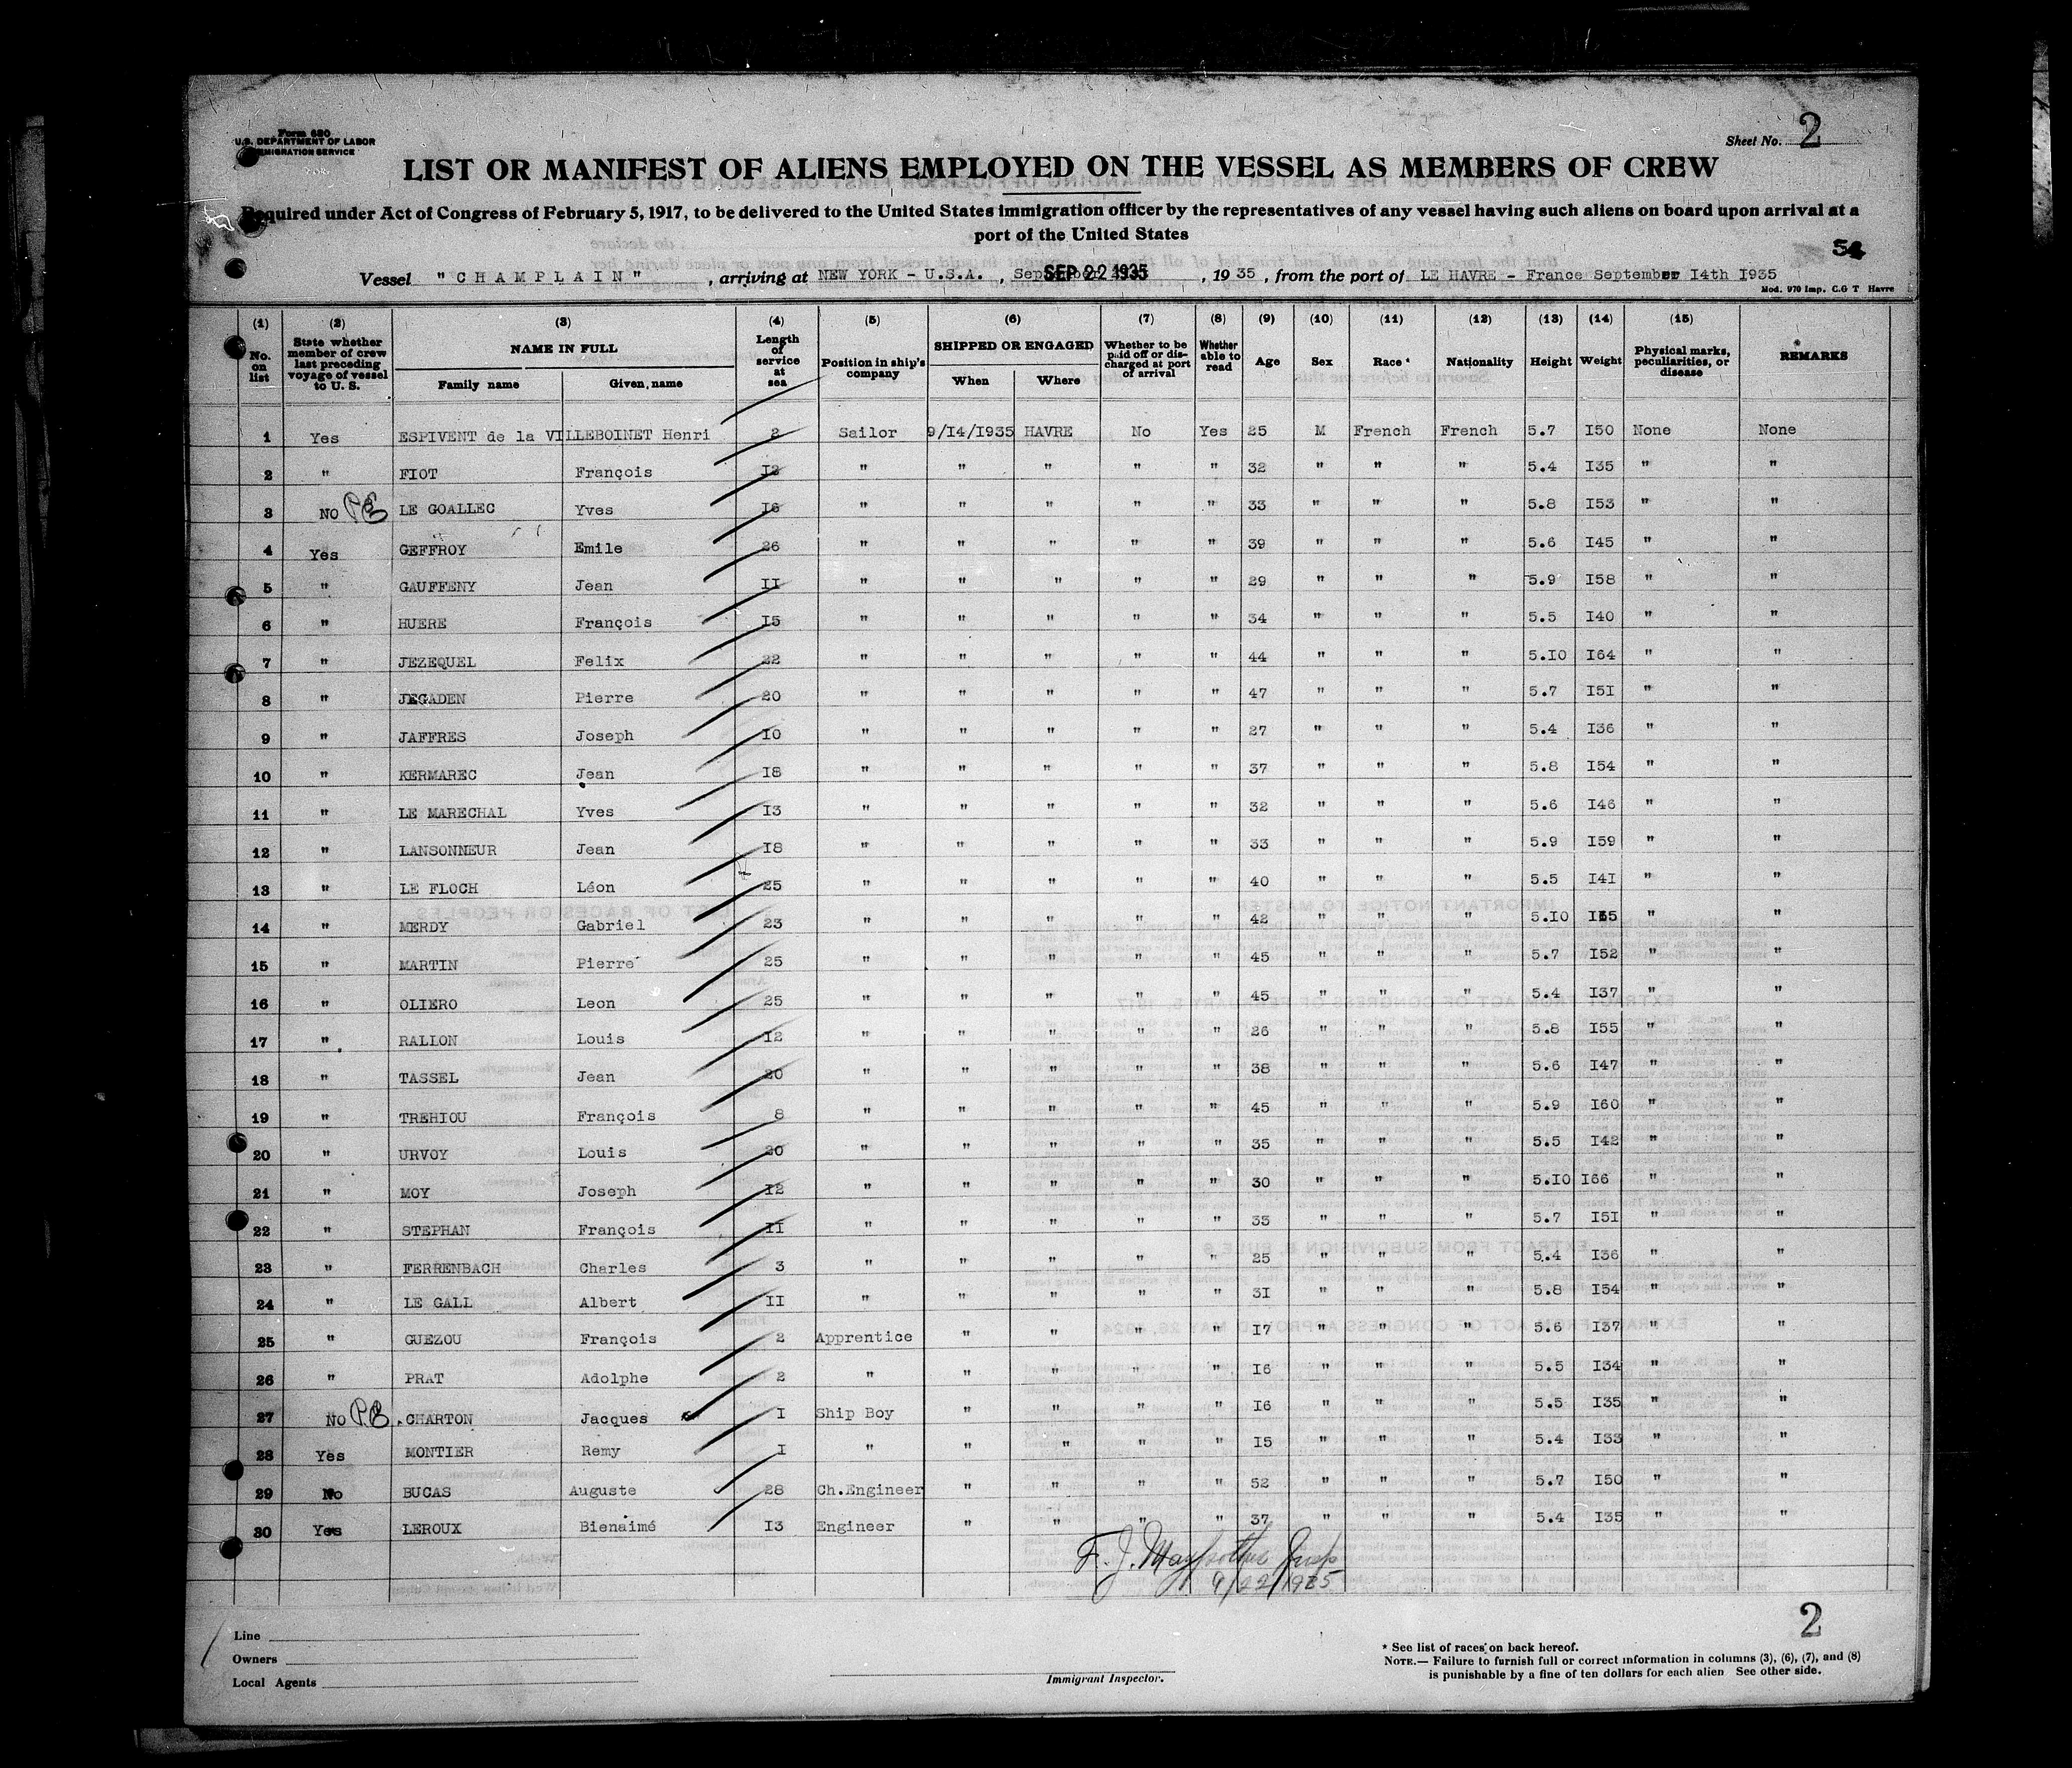 Form 680
U.S. DEPARTMENT OF LABOR
IMMIGRATION SERVICE
Sheet No. 2
LIST OR MANIFEST OF ALIENS EMPLOYED ON THE VESSEL AS MEMBERS OF CREW
Required under Act of Congress of February 5, 1917, to be delivered to the United States immigration officer by the representatives of any vessel having such aliens on board upon arrival at a
port of the United States
54
Vessel "CHAMPLAIN", arriving at NEW YORK - U.S.A., SEP 22 1935, 1935, from the port of LE HAVRE - France September I4th I935
Mod. 970 Imp. C.G T Havre
(1) (2) (3) (4) (5) (6) (7) (8) (9) (10) (11) (12) (13) (14) (15)
No. on list State whether member of crew last preceding voyage of vessel to U. S. NAME IN FULL Family name Given name Length of service at sea Position in ship's company SHIPPED OR ENGAGED When Where Whether to be paid off or discharged at port of arrival Whether able to read Age Sex Race * Nationality Height Weight Physical marks, peculiarities, or disease REMARKS
1 Yes ESPIVENT de la VILLEBOINET Henri 2 Sailor 9/I4/I935 HAVRE No Yes 25 M French French 5.7 I50 None None
2 " FIOT François I2 " " " " " 32 " " " 5.4 I35 " "
3 NO PE LE GOALLEC Yves I6 " " " " " 33 " " " 5.8 I53 " "
4 Yes GEFFROY Emile 26 " " " " " 39 " " " 5.6 I45 " "
5 " GAUFFENY Jean II " " " " " 29 " " " 5.9 I58 " "
6 " HUERE François I5 " " " " " 34 " " " 5.5 I40 " "
7 " JEZEQUEL Felix 22 " " " " " 44 " " " 5.I0 I64 " "
8 " JEGADEN Pierre 20 " " " " " 47 " " " 5.7 I5I " "
9 " JAFFRES Joseph I0 " " " " " 27 " " " 5.4 I36 " "
10 " KERMAREC Jean I8 " " " " " 37 " " " 5.8 I54 " "
11 " LE MARECHAL Yves I3 " " " " " 32 " " " 5.6 I46 " "
12 " LANSONNEUR Jean I8 " " " " " 33 " " " 5.9 I59 " "
13 " LE FLOCH Léon 25 " " " " " 40 " " " 5.5 I4I " "
14 " MERDY Gabriel 23 " " " " " 42 " " " 5.I0 I65 " "
15 " MARTIN Pierre 25 " " " " " 45 " " " 5.7 I52 " "
16 " OLIERO Leon 25 " " " " " 45 " " " 5.4 I37 " "
17 " RALLON Louis I2 " " " " " 26 " " " 5.8 I55 " "
18 " TASSEL Jean 20 " " " " " 38 " " " 5.6 I47 " "
19 " TREHIOU François 8 " " " " " 45 " " " 5.9 I60 " "
20 " URVOY Louis 20 " " " " " 35 " " " 5.5 I42 " "
21 " MOY Joseph I2 " " " " " 30 " " " 5.I0 I66 " "
22 " STEPHAN François II " " " " " 35 " " " 5.7 I5I " "
23 " FERRENBACH Charles 3 " " " " " 25 " " " 5.4 I36 " "
24 " LE GALL Albert II " " " " " 3I " " " 5.8 I54 " "
25 " GUEZOU François 2 Apprentice " " " " I7 " " " 5.6 I37 " "
26 " PRAT Adolphe 2 " " " " " I6 " " " 5.5 I34 " "
27 NO P.E. CHARTON Jacques I Ship Boy " " " " I6 " " " 5.5 I35 " "
28 Yes MONTIER Remy I " " " " " I5 " " " 5.4 I33 " "
29 No BUCAS Auguste 28 Ch.Engineer " " " " 52 " " " 5.7 I50 " "
30 Yes LEROUX Bienaimé I3 Engineer " " " " 37 " " " 5.4 I35 " "
F. J. Insp
9/22/1935
2
Line
Owners
Local Agents
Immigrant Inspector.
* See list of races on back hereof.
NOTE.— Failure to furnish full or correct information in columns (3), (6), (7), and (8)
is punishable by a fine of ten dollars for each alien See other side.